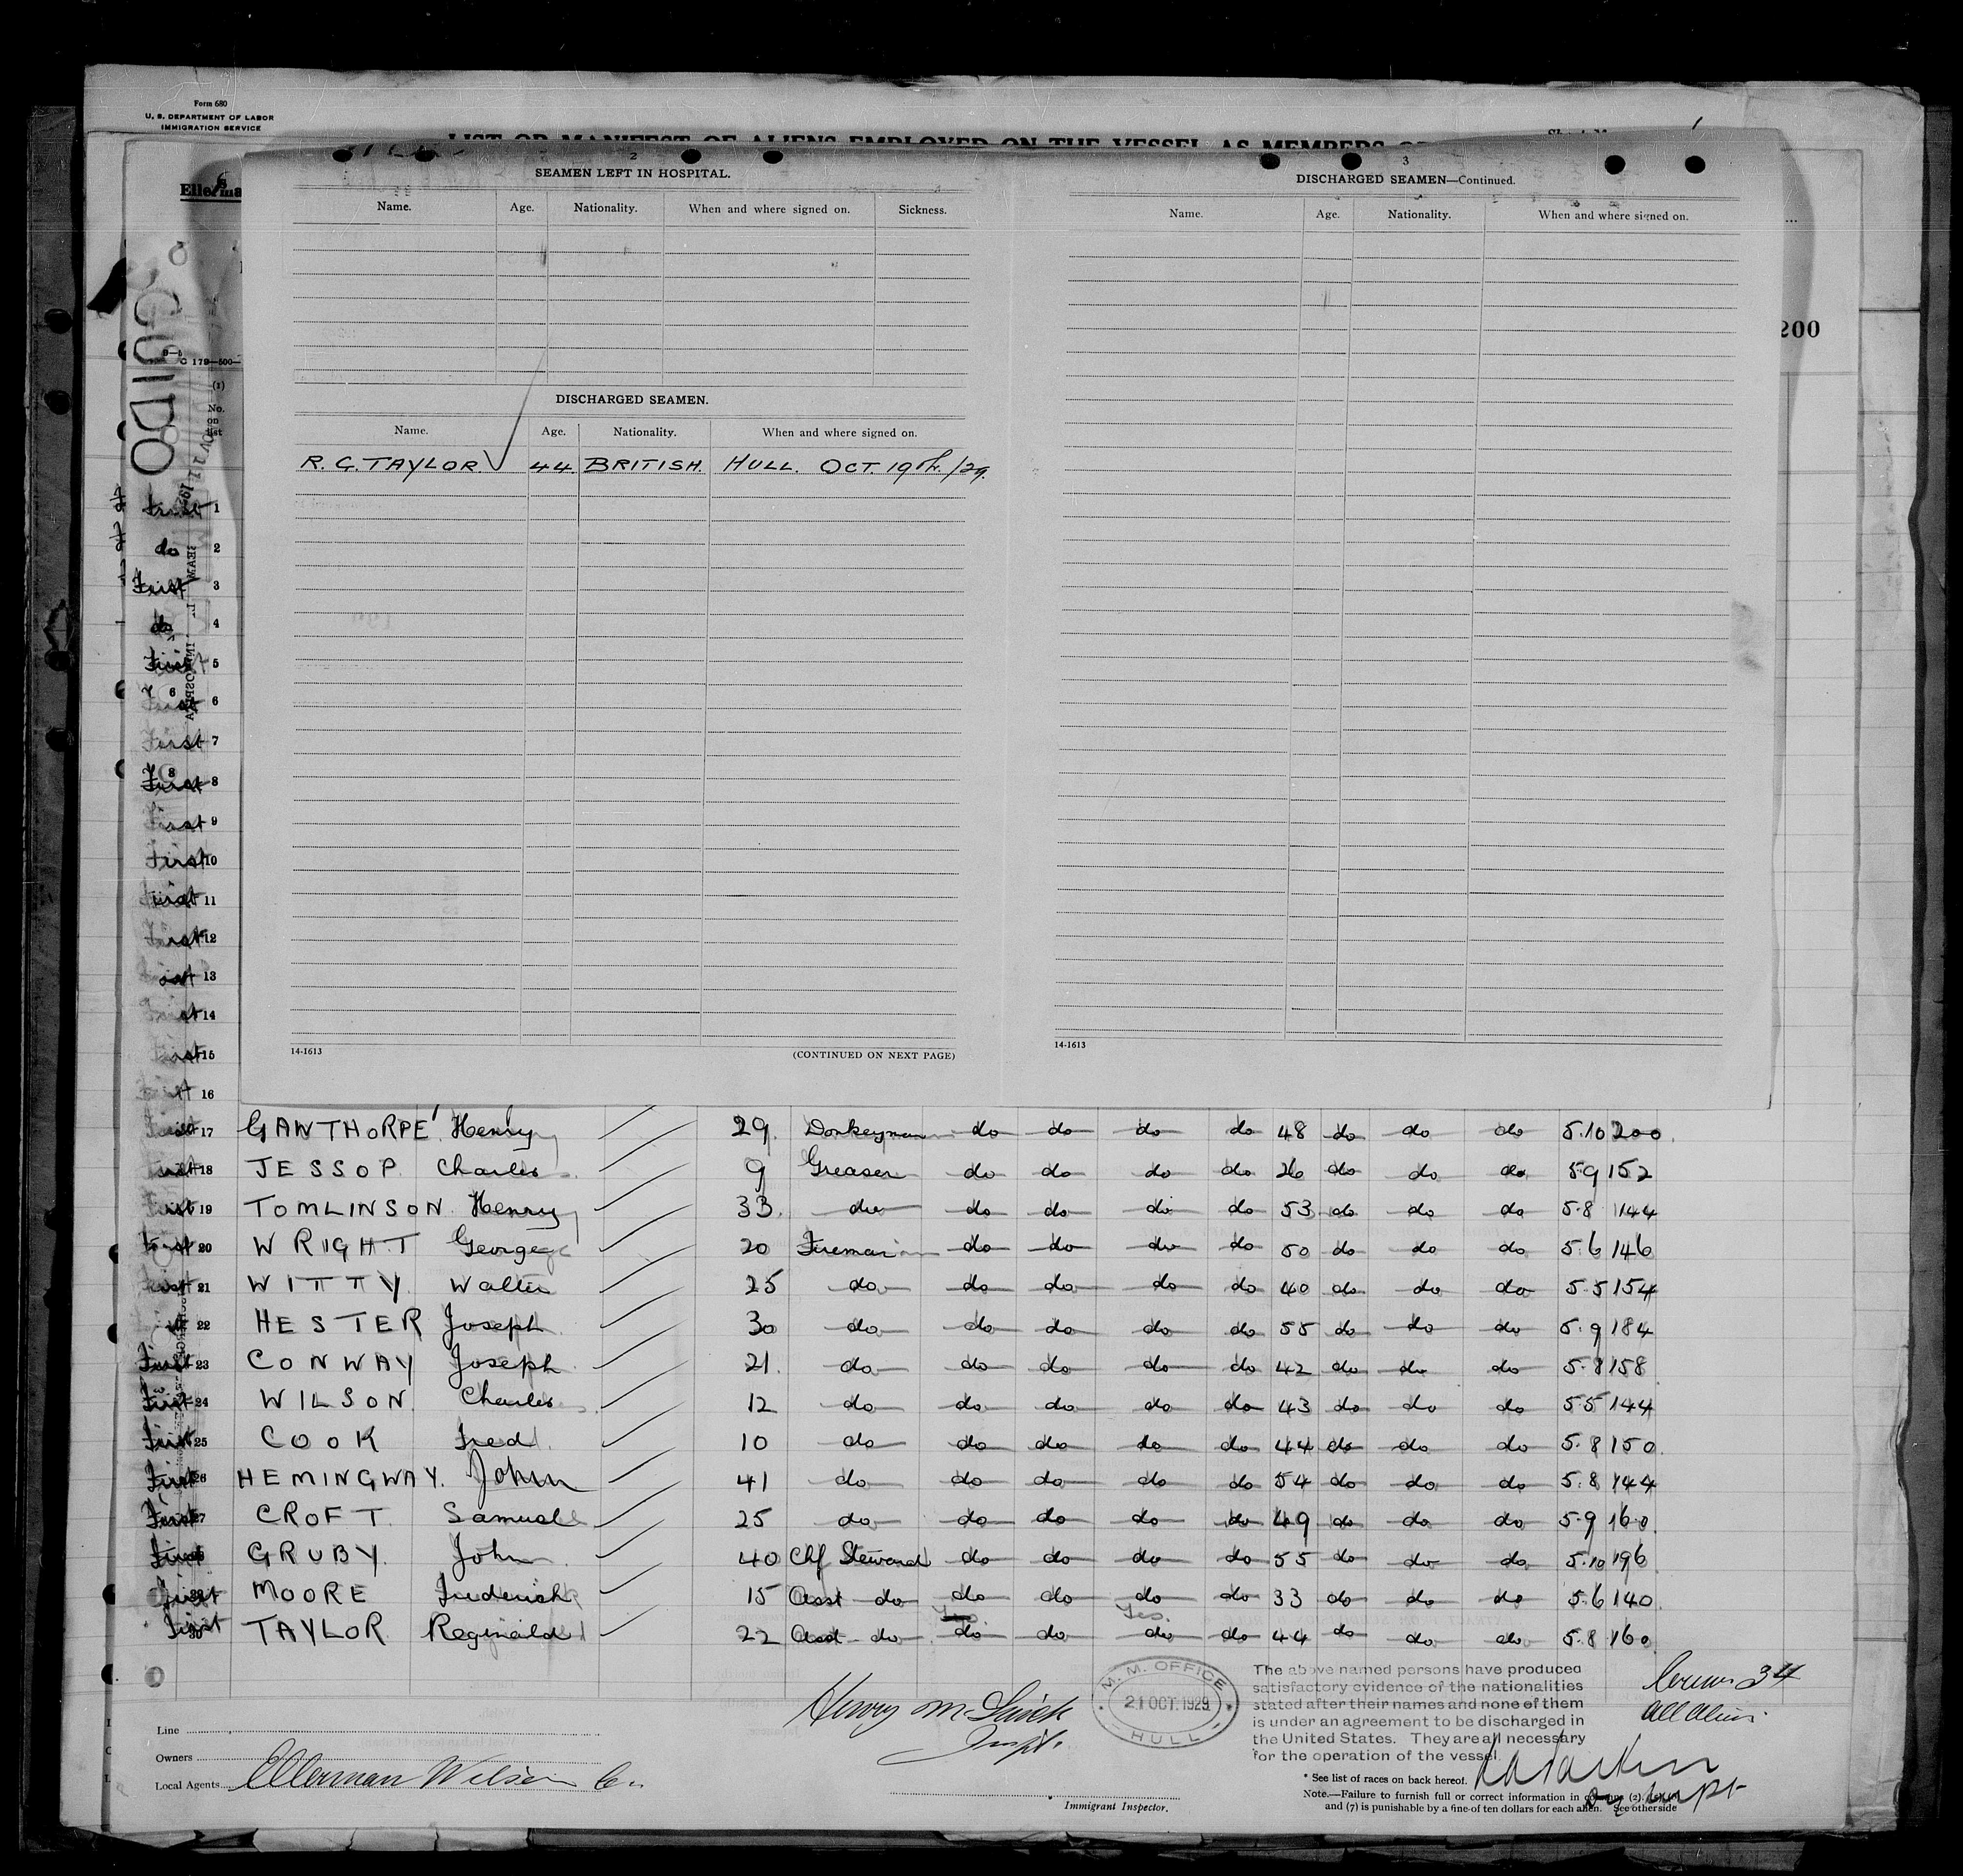 Form 680
U. S. DEPARTMENT OF LABOR
IMMIGRATION SERVICE
LIST OR MANIFEST OF ALIENS EMPLOYED ON THE VESSEL AS MEMBERS
200
GUIDO
(1)
No.
2
SEAMEN LEFT IN HOSPITAL.
Name. Age. Nationality. When and where signed on. Sickness.
DISCHARGED SEAMEN.
Name. Age. Nationality. When and where signed on.
R. G. TAYLOR 44. BRITISH. HULL. OCT. 19th/29.
14-1613 (CONTINUED ON NEXT PAGE)
3
DISCHARGED SEAMEN—Continued.
Name. Age. Nationality. When and where signed on.
14-1613
First 1
do 2
First 3
do 4
First 5
First 6
First 7
First 8
First 9
First 10
First 11
First 12
13
14
15
16
17 GAWTHORPE Henry 29 Donkeyman do do do do 48 do do do 5.10 200
18 JESSOP Charles 9 Greaser do do do do 26 do do do 5.9 152
First 19 TOMLINSON Henry 33 do do do do do 53 do do do 5.8 144
First 20 WRIGHT George 20 Fireman do do do do 50 do do do 5.6 146
First 21 WITTY Walter 25 do do do do do 40 do do do 5.5 154
22 HESTER Joseph 30 do do do do do 55 do do do 5.9 184
First 23 CONWAY Joseph 21 do do do do do 42 do do do 5.8 158
First 24 WILSON Charles 12 do do do do do 43 do do do 5.5 144
First 25 COOK Fred 10 do do do do do 44 do do do 5.8 150
First 26 HEMINGWAY. John 41 do do do do do 54 do do do 5.8 144
First 27 CROFT Samuel 25 do do do do do 49 do do do 5.9 160
First 28 GRUBY John 40 Chf Steward do do do do 55 do do do 5.10 196
First 29 MOORE Frederick 15 Asst do do do do do 33 do do do 5.6 140
Yes.
First 30 TAYLOR Reginald 22 Asst do do do do do 44 do do do 5.8 160
Line
Owners
Local Agents Ellerman Wilson
Inspt.
Immigrant Inspector.
M. M. OFFICE
21 OCT. 1929
HULL
The above named persons have produced
satisfactory evidence of the nationalities
stated after their names and none of them
is under an agreement to be discharged in
the United States. They are all necessary
for the operation of the vessel.
34
All Aliens
* See list of races on back hereof.
Note.—Failure to furnish full or correct information in columns (2),
and (7) is punishable by a fine of ten dollars for each alien. See other side